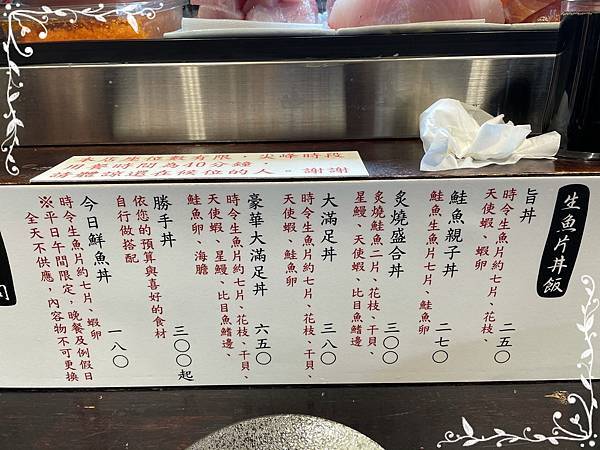 本店座位數有限，尖峰時段
用餐時間為40分鐘，
請體諒還在候位的人。謝謝
生魚片丼飯
旨丼 二五〇
時令生魚片約七片、花枝、
天使蝦、蝦卵
鮭魚親子丼 二七〇
鮭魚生魚片七片、鮭魚卵
炙燒盛合丼 三〇〇
炙燒鮭魚二片、花枝、干貝、
星鰻、天使蝦、比目魚鰭邊
大滿足丼 三八〇
時令生魚片約七片、花枝、干貝、
天使蝦、鮭魚卵
豪華大滿足丼 六五〇
時令生魚片約七片、花枝、干貝、
天使蝦、星鰻、比目魚鰭邊、
鮭魚卵、海膽
勝手丼 三〇〇起
依您的預算與喜好的食材
自行做搭配
今日鮮魚丼 一八〇
時令生魚片約七片、蝦卵
※平日午間限定，晚餐及例假日
全天不供應，內容物不可更換